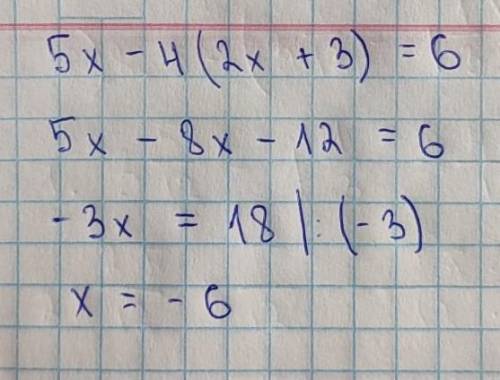 5x - 4(2x + 3) = 6
5x - 8x - 12 = 6
-3x = 18 |:(-3)
x = -6